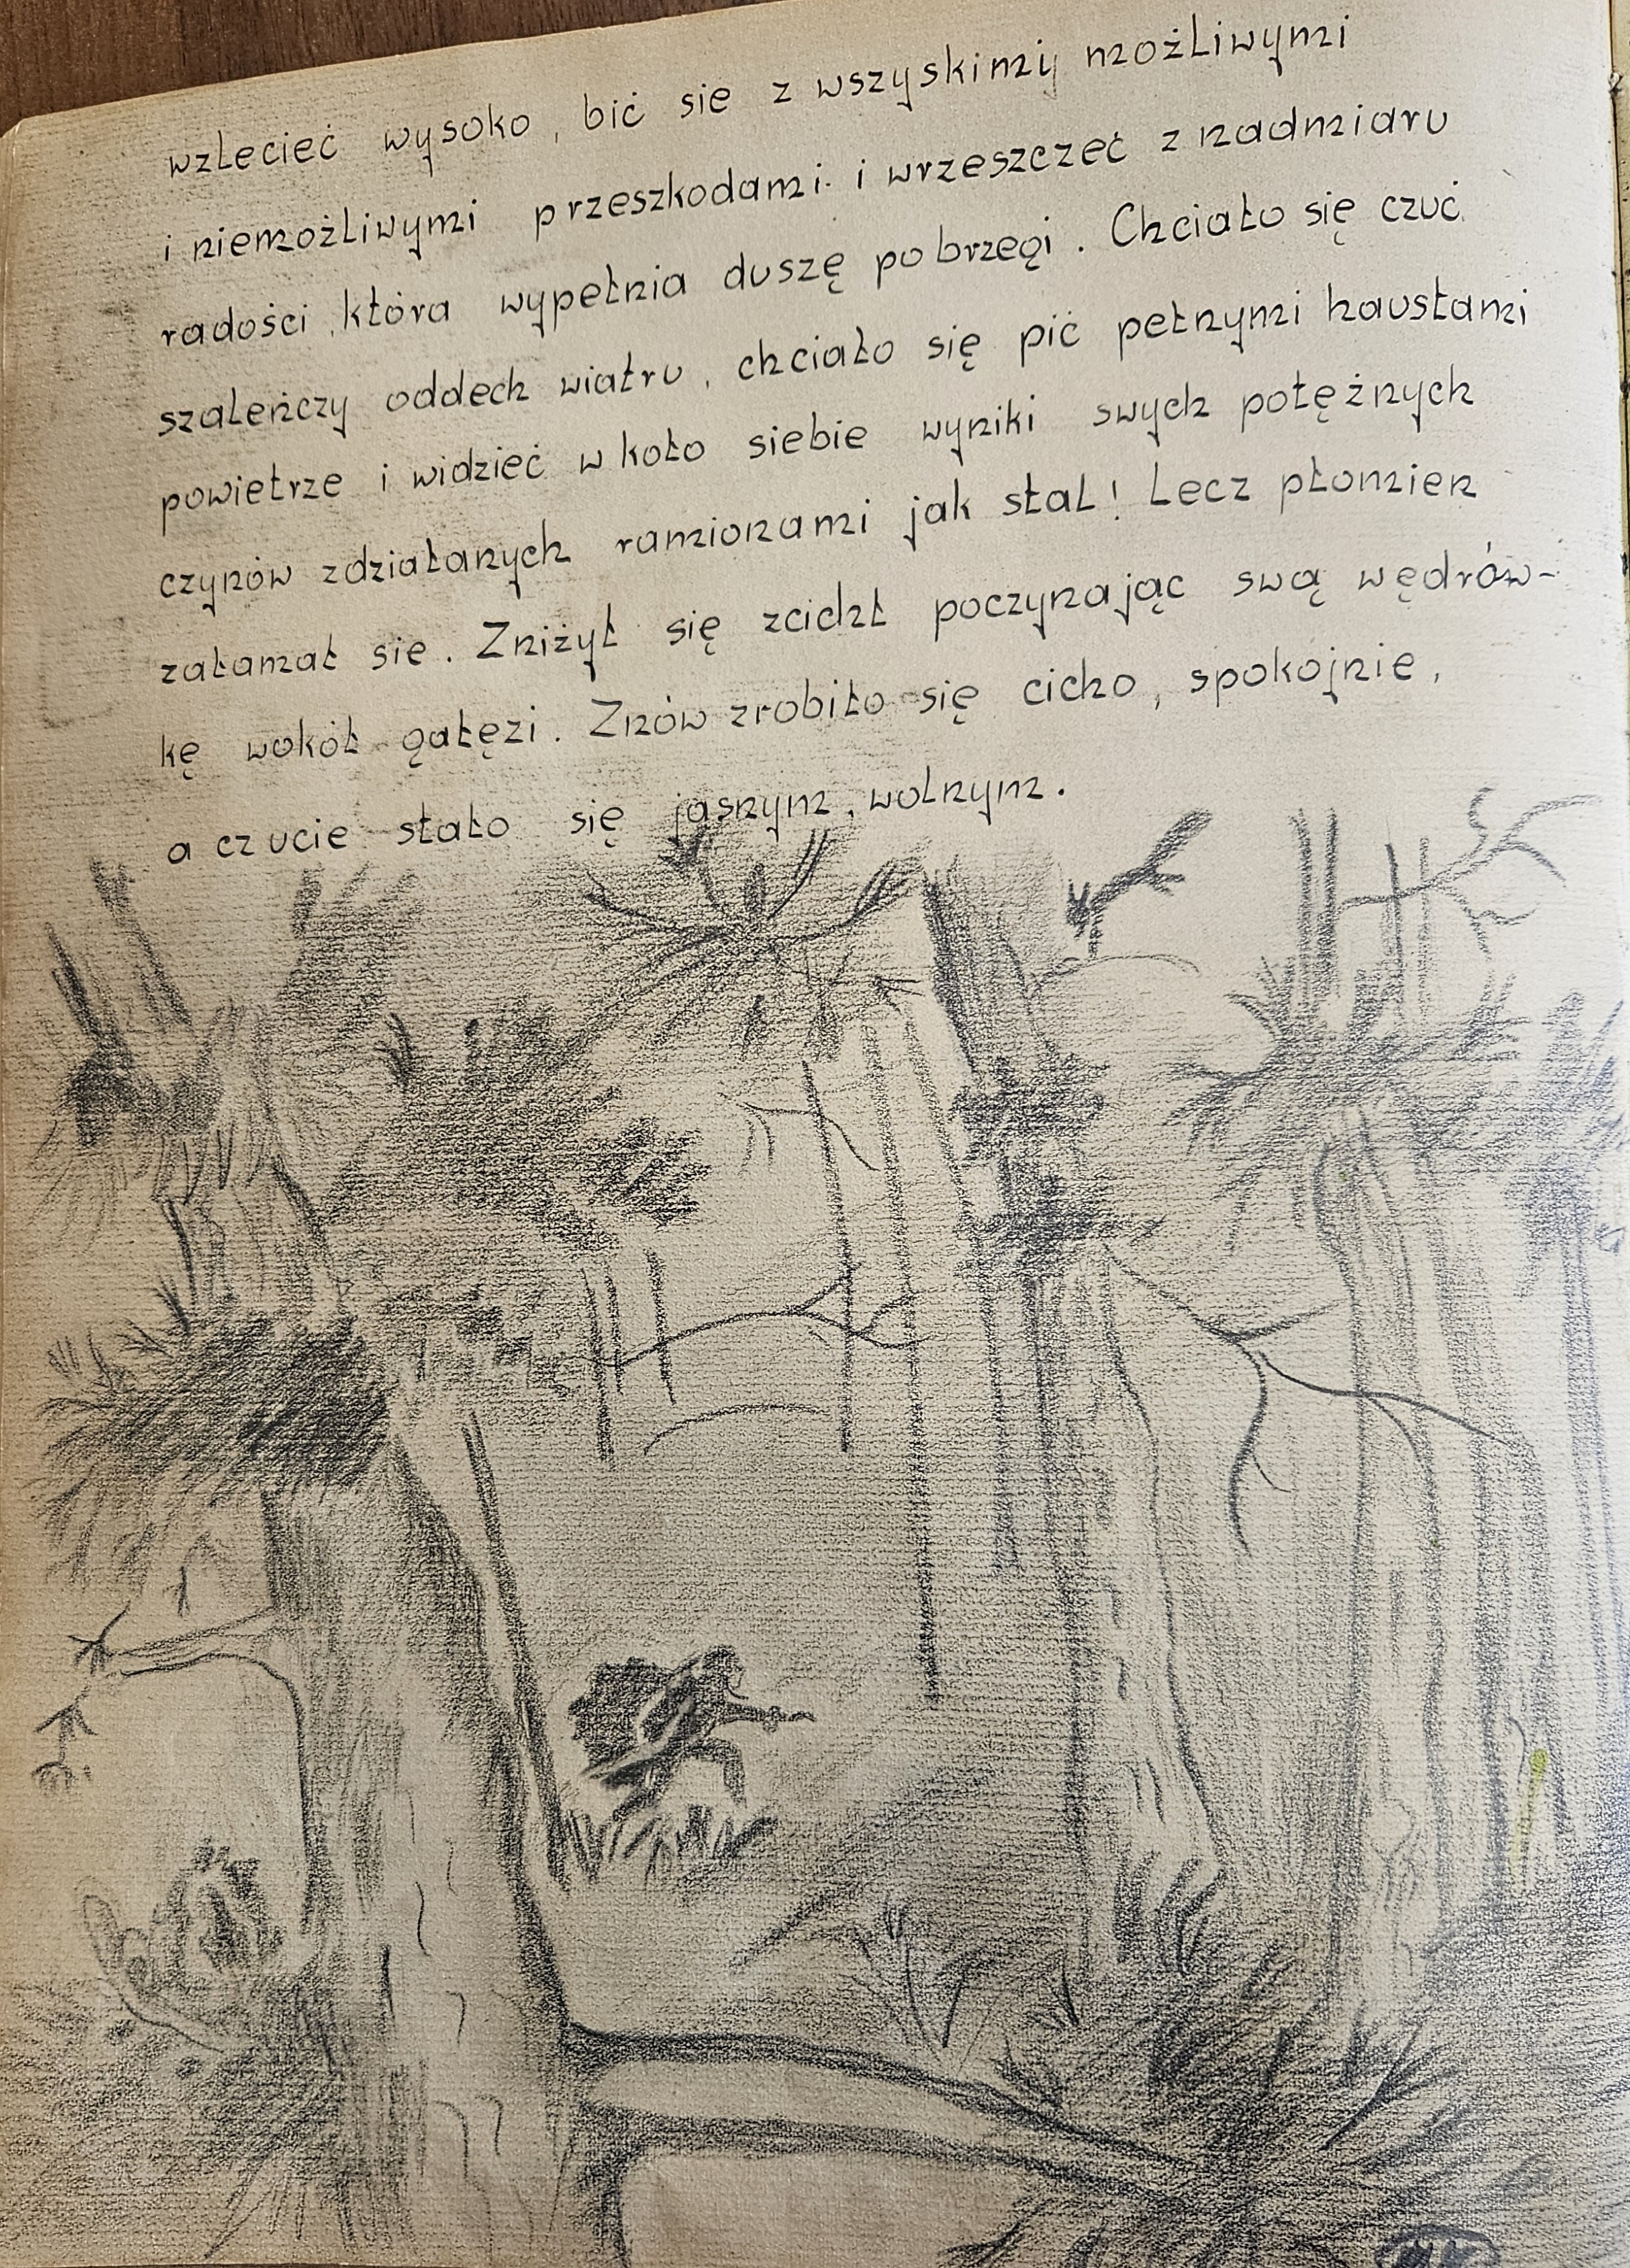 wzlecieć wysoko, bić sie z wszyskimi możliwymi
i niemożliwymi przeszkodami i wrzeszczeć z nadmiaru
radości, która wypełnia duszę po brzegi. Chciało się czuć
szaleńczy oddech wiatru, chciało się pić pełnymi haustami
powietrze i widzieć w koło siebie wyniki swych potężnych
czynów zdziałanych ramionami jak stal! Lecz płomien
załamał sie. Zniżył się zcichł poczynając swą wędrów-
kę wokół gałęzi. Znów zrobiło się cicho, spokojnie,
a czucie stało się jasnym, wolnym.